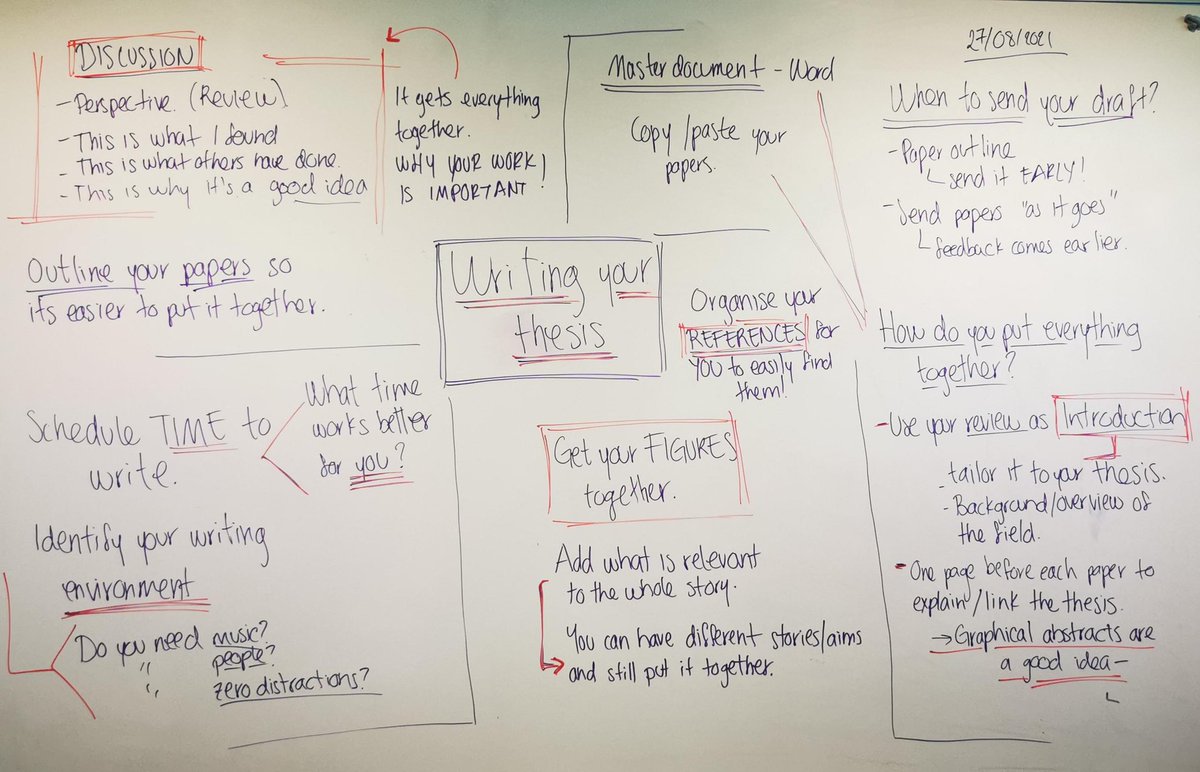 DISCUSSION
- Perspective. (Review)
- This is what I found
- This is what others have done.
- This is why it's a good idea
It gets everything
together.
WHY YOUR WORK
IS IMPORTANT!
Master document - Word
Copy/paste your
papers.
27/08/2021
When to send your draft?
- Paper outline
send it EARLY!
- Send papers "as it goes"
feedback comes earlier.
Outline your papers so
its easier to put it together.
Writing your
thesis
Organise your
REFERENCES for
YOU to easily find
them!
How do you put everything
together?
- Use your review as Introduction
- tailor it to your thesis.
- Background/overview of
the field.
- One page before each paper to
explain/link the thesis.
→ Graphical abstracts are
a good idea -
Schedule TIME to
write.
What time
works better
for you?
Identify your writing
environment
Do you need music?
" people?
" zero distractions?
Get your FIGURES
together.
Add what is relevant
to the whole story.
You can have different stories/aims
and still put it together.